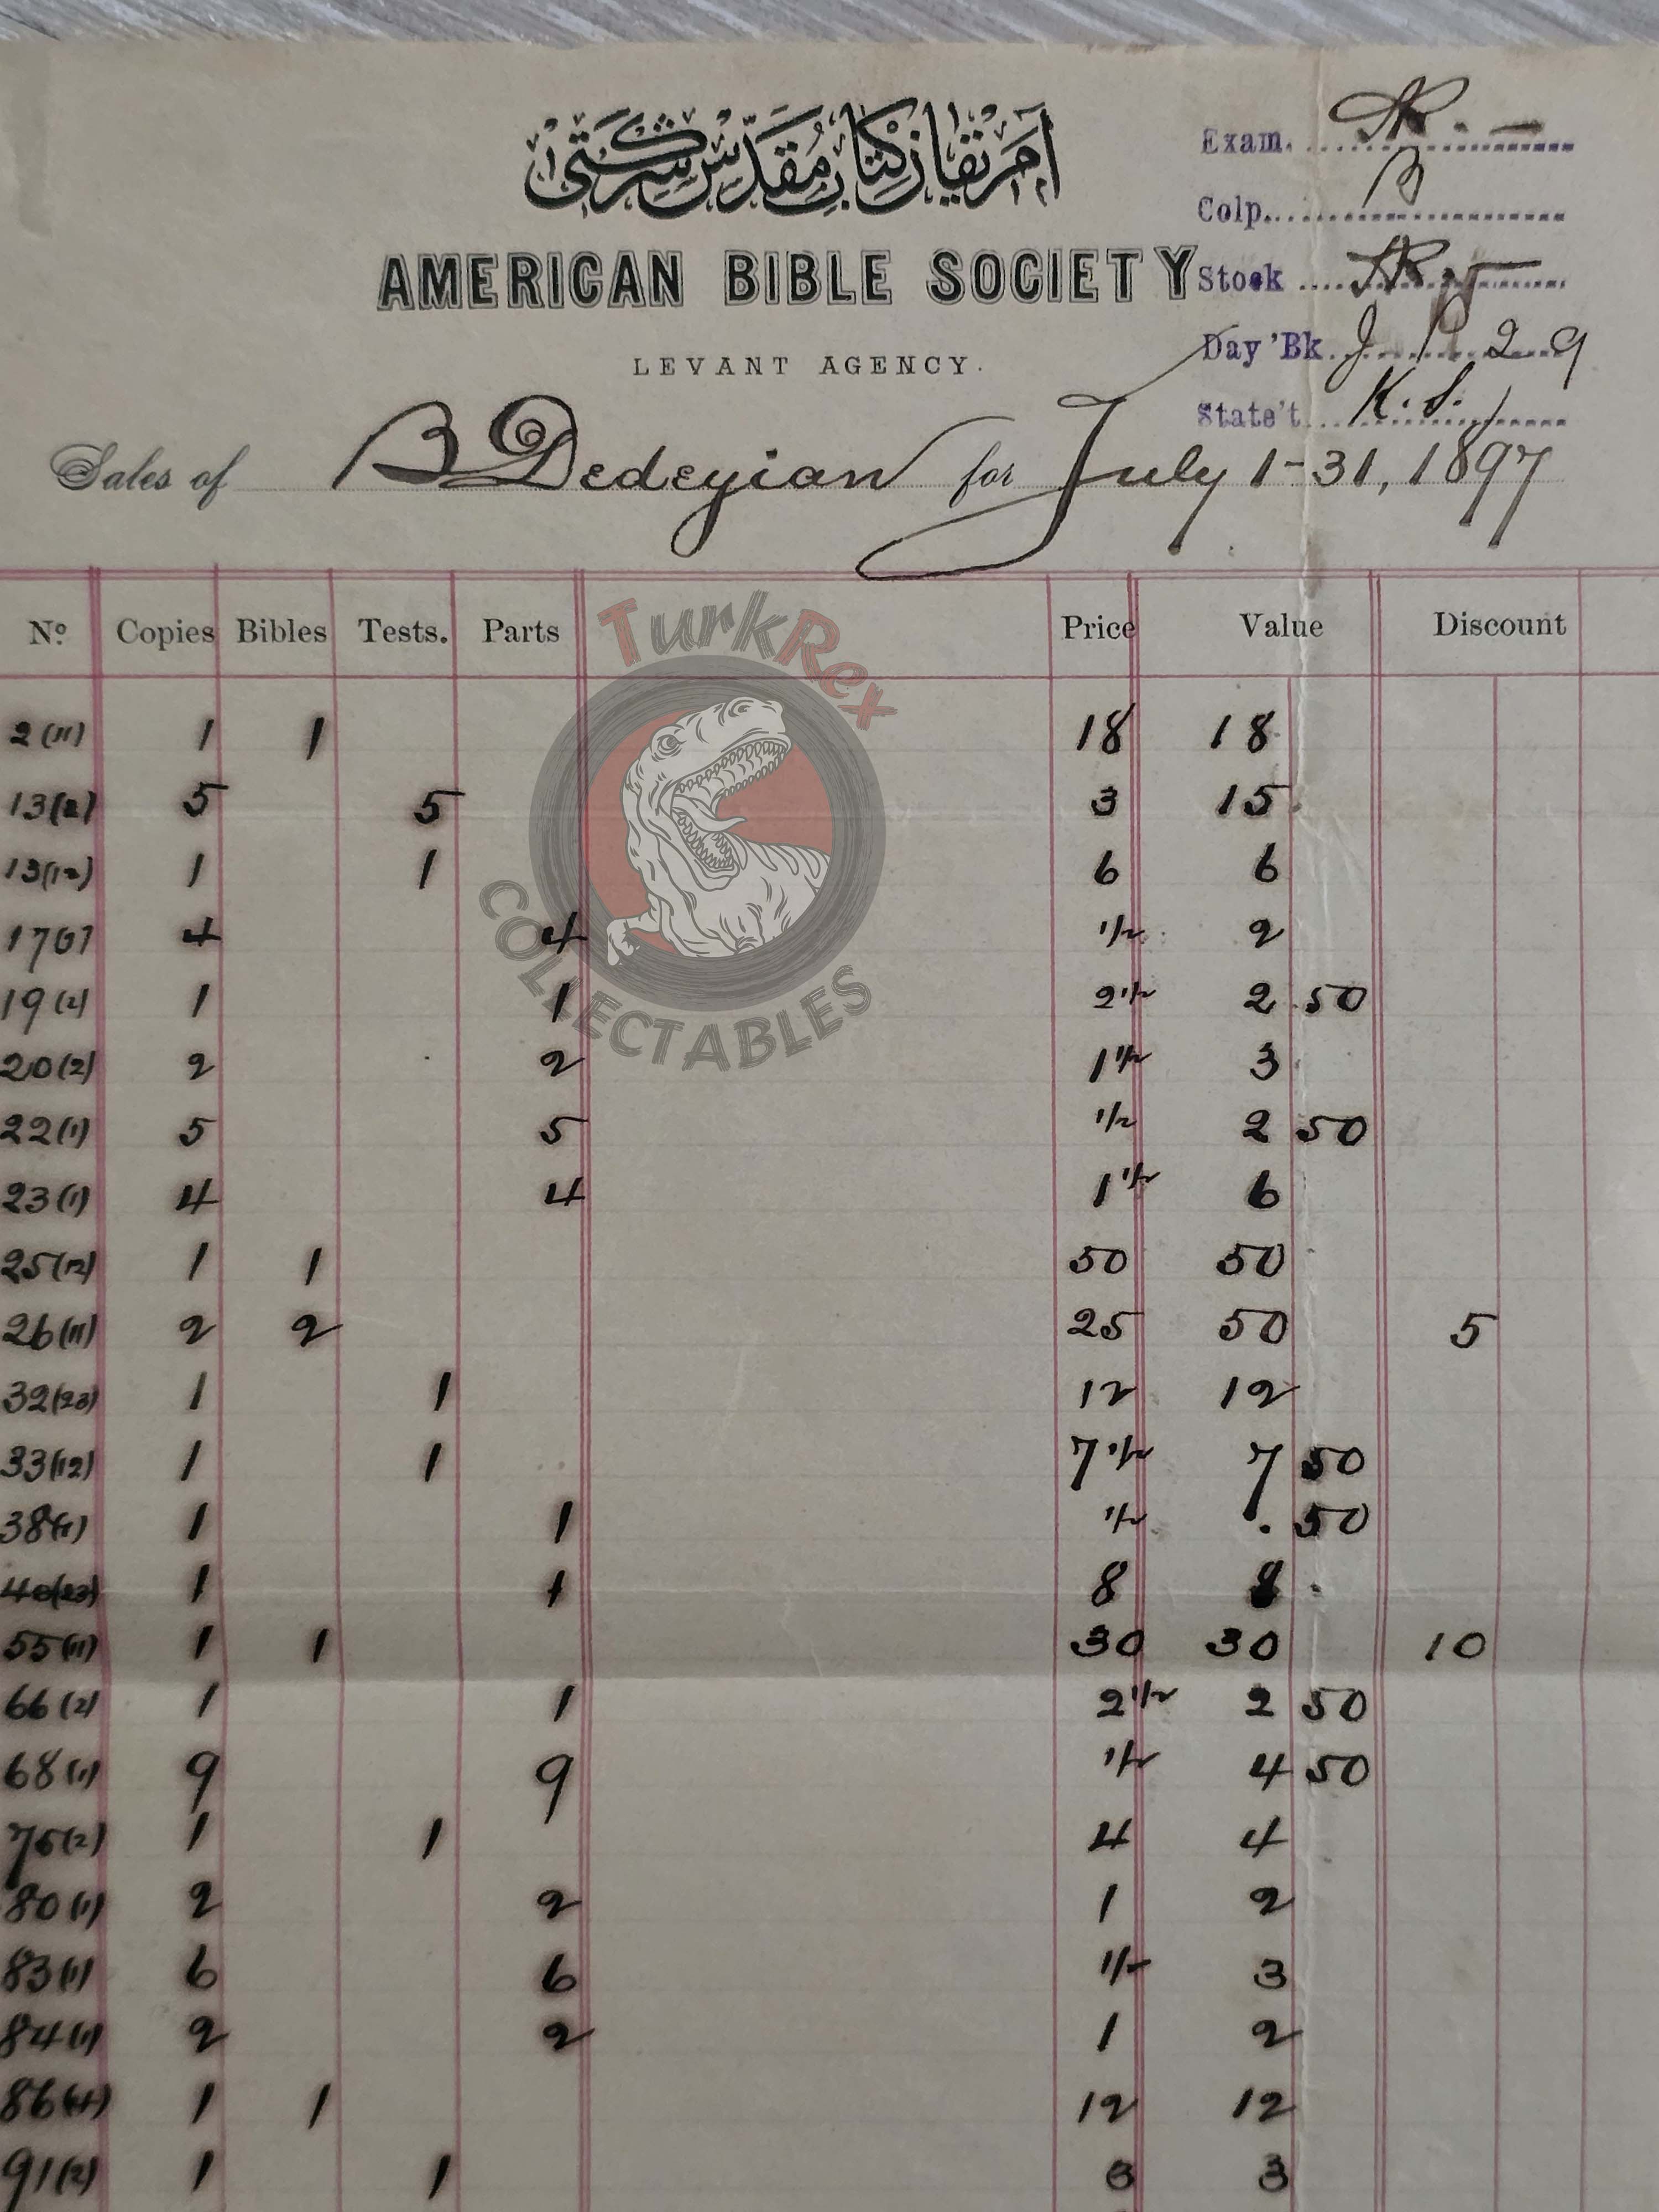 آمریقان کتاب مقدس شرکتی
AMERICAN BIBLE SOCIETY
LEVANT AGENCY.
Exam.
Colp. B
Stock
Day'Bk. J. P. 29
State't. K. S.
Sales of B Dedeyian for July 1-31, 1897
Nº Copies Bibles Tests. Parts Price Value Discount
TurkRex
COLLECTABLES
2(11) 1 1 18 18
13(2) 5 5 3 15
13(12) 1 1 6 6
17(1) 4 4 1/2 2
19(2) 1 1 2 1/2 2 50
20(2) 2 2 1 1/2 3
22(1) 5 5 1/2 2 50
23(1) 4 4 1 1/2 6
25(12) 1 1 50 50
26(11) 2 2 25 50 5
32(23) 1 1 12 12
33(12) 1 1 7 1/2 7 50
38(1) 1 1 1/2 . 50
40(23) 1 1 8 8
55(11) 1 1 30 30 10
66(2) 1 1 2 1/2 2 50
68(1) 9 9 1/2 4 50
76(2) 1 1 4 4
80(1) 2 2 1 2
83(1) 6 6 1/2 3
84(1) 2 2 1 2
86(11) 1 1 12 12
91(2) 1 1 3 3